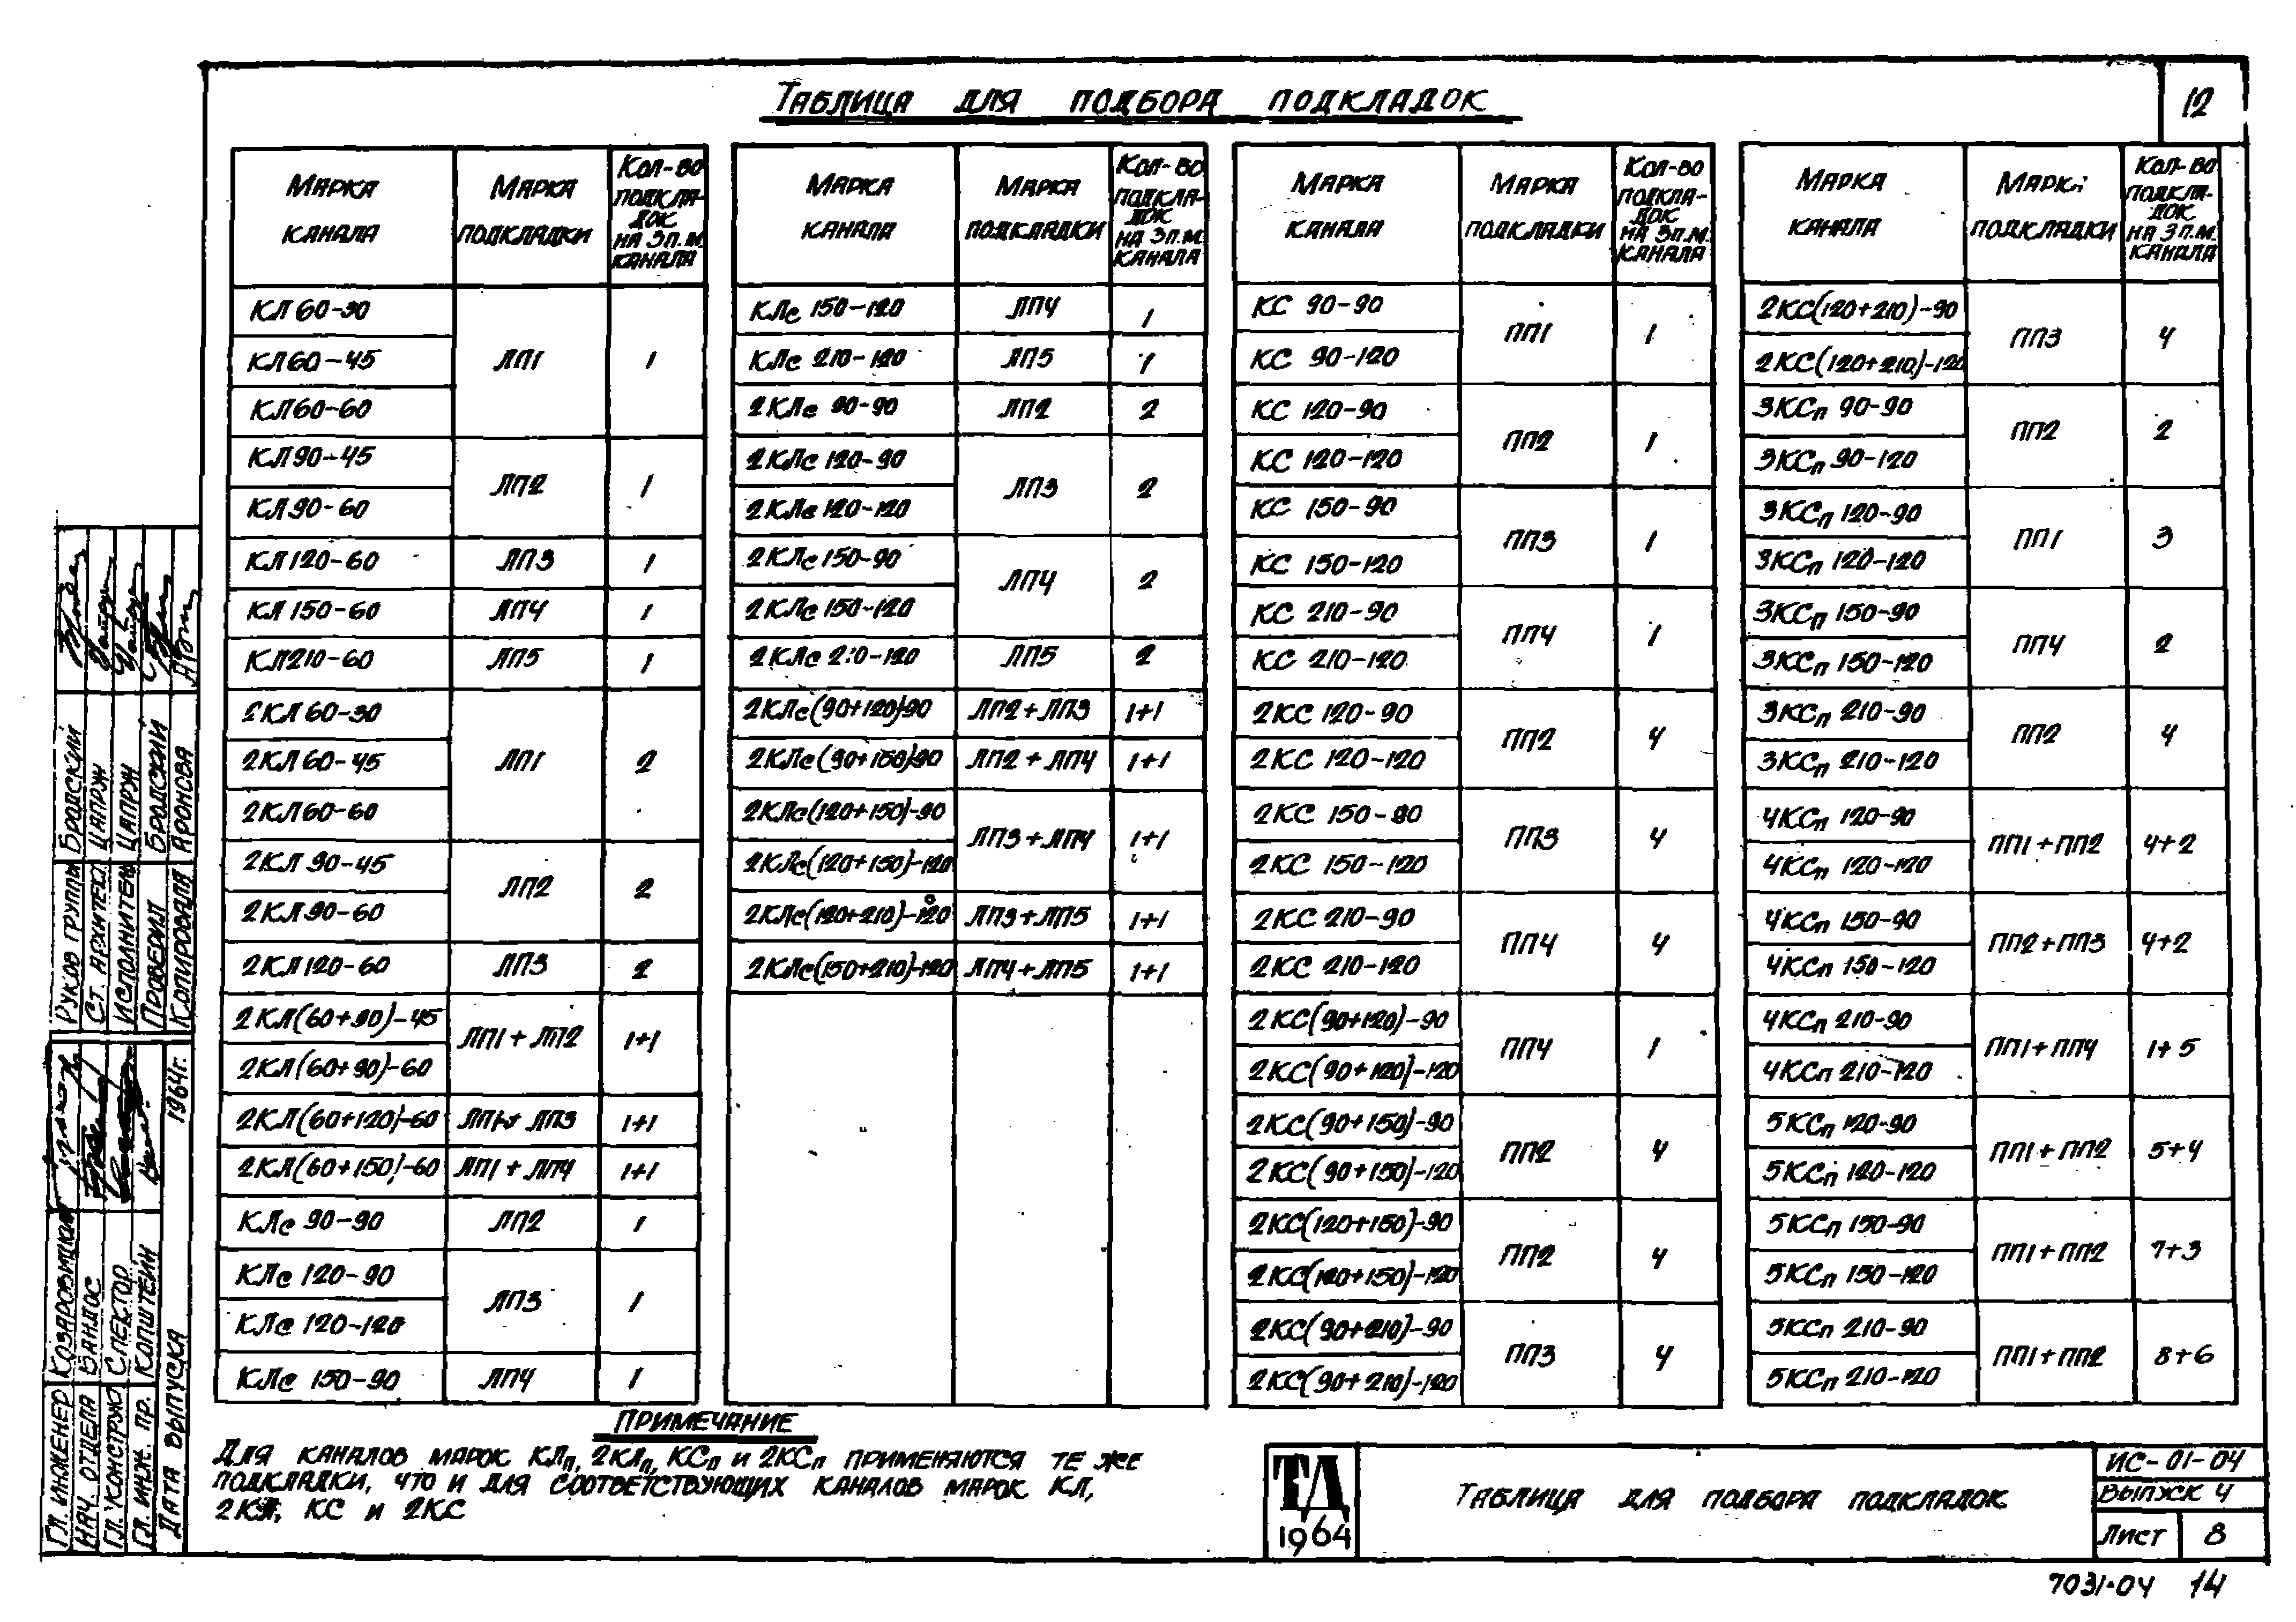 Таблица для подбора подкладок
12
Марка канала
Марка подкладки
Кол-во подкладок на 3п.м. канала
КЛ 60-30
КЛ 60-45
КЛ 60-60
ЛП1
1
КЛ 90-45
КЛ 90-60
ЛП2
1
КЛ 120-60
ЛП3
1
КЛ 150-60
ЛП4
1
КЛ 210-60
ЛП5
1
2КЛ 60-30
2КЛ 60-45
2КЛ 60-60
ЛП1
2
2КЛ 90-45
2КЛ 90-60
ЛП2
2
2КЛ 120-60
ЛП3
2
2КЛ(60+90)-45
2КЛ(60+90)-60
ЛП1+ЛП2
1+1
2КЛ(60+120)-60
ЛП1+ЛП3
1+1
2КЛ(60+150)-60
ЛП1+ЛП4
1+1
КЛс 90-90
ЛП2
1
КЛс 120-90
КЛс 120-120
ЛП3
1
КЛс 150-90
ЛП4
1
Марка канала
Марка подкладки
Кол-во подкладок на 3п.м. канала
КЛс 150-120
ЛП4
1
КЛс 210-120
ЛП5
1
2КЛс 90-90
ЛП2
2
2КЛс 120-90
2КЛс 120-120
ЛП3
2
2КЛс 150-90
2КЛс 150-120
ЛП4
2
2КЛс 210-120
ЛП5
2
2КЛс(90+120)-90
ЛП2+ЛП3
1+1
2КЛс(90+150)-90
ЛП2+ЛП4
1+1
2КЛс(120+150)-90
2КЛс(120+150)-120
ЛП3+ЛП4
1+1
2КЛс(120+210)-120
ЛП3+ЛП5
1+1
2КЛс(150+210)-120
ЛП4+ЛП5
1+1
Марка канала
Марка подкладки
Кол-во подкладок на 3п.м. канала
КС 90-90
КС 90-120
ПП1
1
КС 120-90
КС 120-120
ПП2
1
КС 150-90
КС 150-120
ПП3
1
КС 210-90
КС 210-120
ПП4
1
2КС 120-90
2КС 120-120
ПП2
4
2КС 150-90
2КС 150-120
ПП3
4
2КС 210-90
2КС 210-120
ПП4
4
2КС(90+120)-90
2КС(90+120)-120
ПП4
1
2КС(90+150)-90
2КС(90+150)-120
ПП2
4
2КС(120+150)-90
2КС(120+150)-120
ПП2
4
2КС(90+210)-90
2КС(90+210)-120
ПП3
4
Марка канала
Марка подкладки
Кол-во подкладок на 3п.м. канала
2КС(120+210)-90
2КС(120+210)-120
ПП3
4
3КСп 90-90
3КСп 90-120
ПП2
2
3КСп 120-90
3КСп 120-120
ПП1
3
3КСп 150-90
3КСп 150-120
ПП4
2
3КСп 210-90
3КСп 210-120
ПП2
4
4КСп 120-90
4КСп 120-120
ПП1+ПП2
4+2
4КСп 150-90
4КСп 150-120
ПП2+ПП3
4+2
4КСп 210-90
4КСп 210-120
ПП1+ПП4
1+5
5КСп 120-90
5КСп 120-120
ПП1+ПП2
5+4
5КСп 150-90
5КСп 150-120
ПП1+ПП2
7+3
5КСп 210-90
5КСп 210-120
ПП1+ПП2
8+6
Примечание
Для каналов марок КЛп, 2КЛп, КСп и 2КСп применяются те же
подкладки, что и для соответствующих каналов марок КЛ,
2КЛ, КС и 2КС
ТД
1964
Таблица для подбора подкладок
ИС-01-04
Выпуск 4
Лист 8
7031-04 14
Руков группы Бродский
Ст. архитект. Цапруж
Исполнитель Цапруж
Проверил Бродский
Копировала Аронова
Гл. инженер
Нач. отдела Бандос
Гл. конструк. Спектор
Гл. инж. пр. Копштейн
Дата выпуска 1964г.